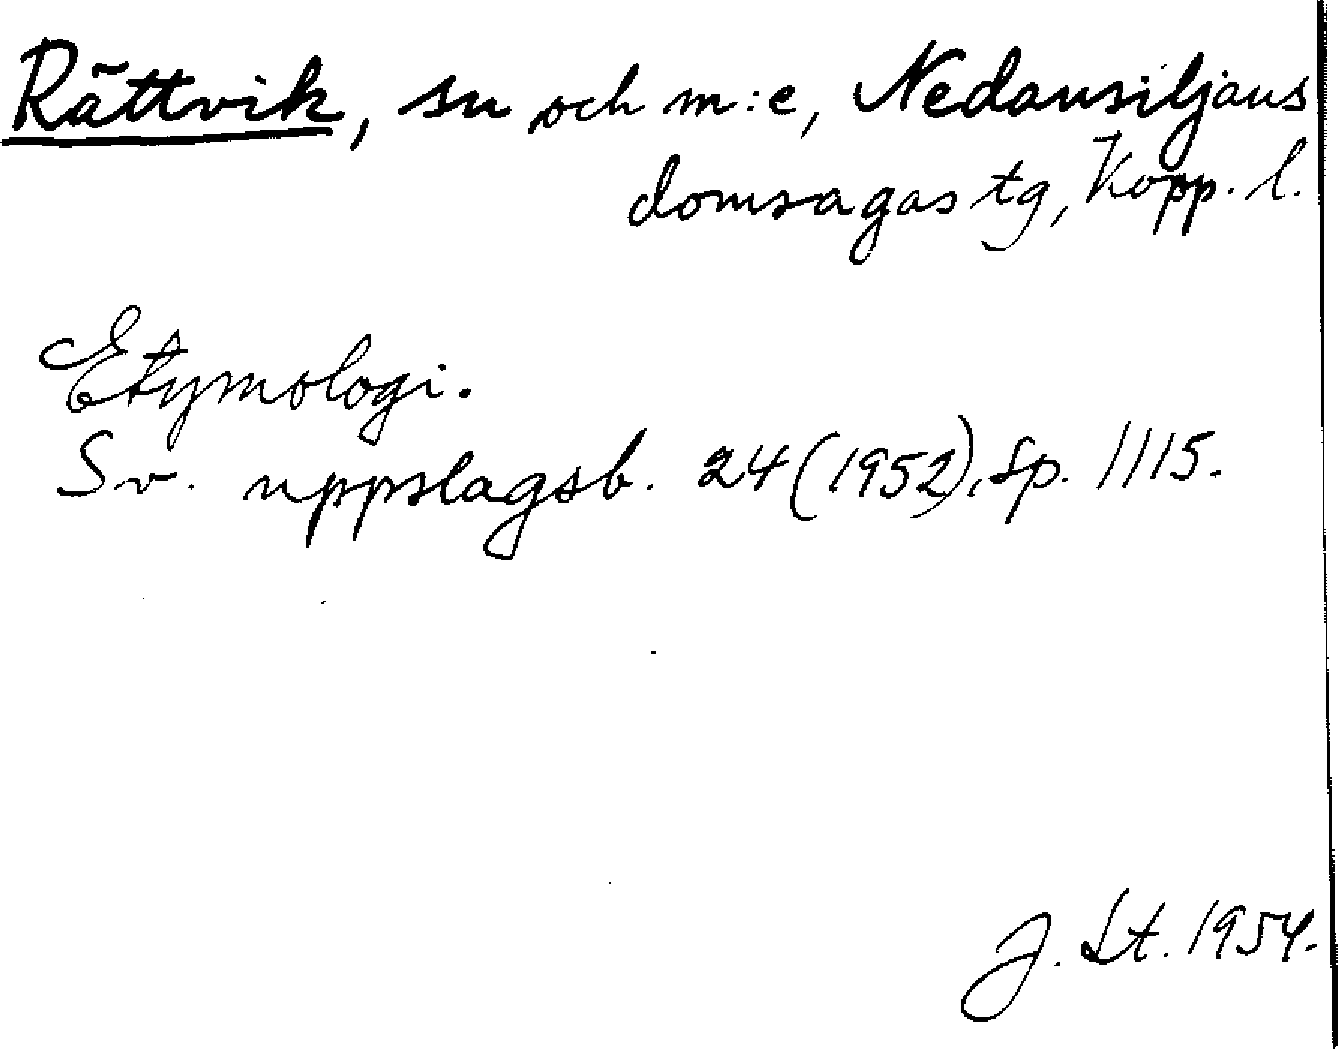 Rättvik, sn och m:e, Nedansiljans
domsagas tg, Kopp. l.
Etymologi.
Sv. uppslagsb. 24 (1952), sp. 1115.
J. St. 1954.